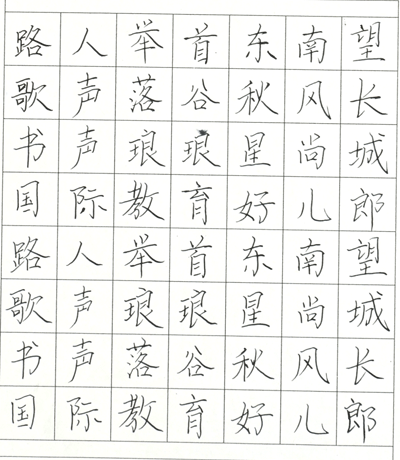 路人举首东南望
歌声落谷秋风长
书声琅琅星尚城
国际教育好儿郎
路人举首东南望
歌声琅琅星尚城
书声落谷秋风长
国际教育好儿郎